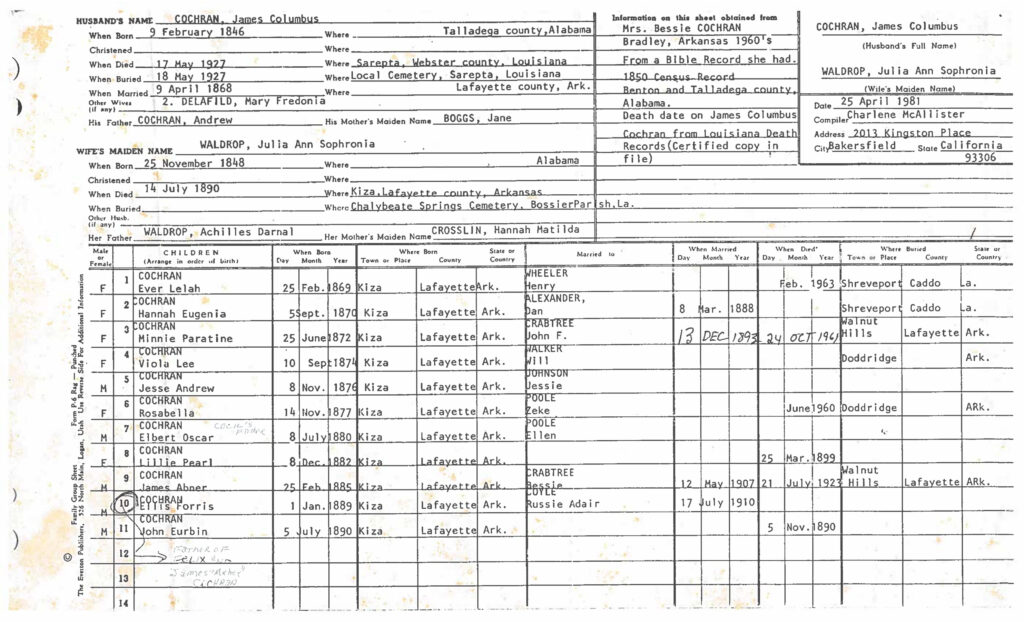 HUSBAND'S NAME COCHRAN, James Columbus
When Born 9 February 1846 Where Talladega county,Alabama
Christened Where
When Died 17 May 1927 Where Sarepta, Webster county, Louisiana
When Buried 18 May 1927 Where Local Cemetery, Sarepta, Louisiana
When Married 9 April 1868 Where Lafayette county, Ark.
Other Wives (if any) 2. DELAFILD, Mary Fredonia
His Father COCHRAN, Andrew His Mother's Maiden Name BOGGS, Jane
WIFE'S MAIDEN NAME WALDROP, Julia Ann Sophronia
When Born 25 November 1848 Where Alabama
Christened Where
When Died 14 July 1890 Where Kiza,Lafayette county, Arkansas
When Buried Where Chalybeate Springs Cemetery, BossierParish,La.
Other Husb. (if any)
Her Father WALDROP, Achilles Darnal Her Mother's Maiden Name CROSSLIN, Hannah Matilda
Information on this sheet obtained from
Mrs. Bessie COCHRAN
Bradley, Arkansas 1960's
From a Bible Record she had.
1850 Census Record
Benton and Talladega county,
Alabama.
Death date on James Columbus
Cochran from Louisiana Death
Records(Certified copy in
file)
COCHRAN, James Columbus
(Husband's Full Name)
WALDROP, Julia Ann Sophronia
(Wife's Maiden Name)
Date 25 April 1981
Compiler Charlene McAllister
Address 2013 Kingston Place
City Bakersfield State California
93306
Male or Female CHILDREN (Arrange in order of birth) When Born Day Month Year Where Born Town or Place County State or Country Married to When Married Day Month Year When Died Day Month Year Where Buried Town or Place County State or Country
F 1 COCHRAN Ever Lelah 25 Feb. 1869 Kiza Lafayette Ark. WHEELER Henry Feb. 1963 Shreveport Caddo La.
F 2 COCHRAN Hannah Eugenia 5 Sept. 1870 Kiza Lafayette Ark. ALEXANDER, Dan 8 Mar. 1888 Shreveport Caddo La.
F 3 COCHRAN Minnie Paratine 25 June 1872 Kiza Lafayette Ark. CRABTREE John F. 13 DEC 1893 24 OCT 1961 Walnut Hills Lafayette Ark.
F 4 COCHRAN Viola Lee 10 Sept 1874 Kiza Lafayette Ark. WALKER Will Doddridge Ark.
M 5 COCHRAN Jesse Andrew 8 Nov. 1876 Kiza Lafayette Ark. JOHNSON Jessie
F 6 COCHRAN Rosabella 14 Nov. 1877 Kiza Lafayette Ark. POOLE Zeke June 1960 Doddridge ARk.
M 7 COCHRAN Elbert Oscar 8 July 1880 Kiza Lafayette Ark. POOLE Ellen
F 8 COCHRAN Lillie Pearl 8 Dec. 1882 Kiza Lafayette Ark. 25 Mar. 1899
M 9 COCHRAN James Abner 25 Feb. 1885 Kiza Lafayette Ark. CRABTREE Bessie 12 May 1907 21 July 1923 Walnut Hills Lafayette ARk.
M 10 COCHRAN Ellis Forris 1 Jan. 1889 Kiza Lafayette Ark. COYLE Russie Adair 17 July 1910
M 11 COCHRAN John Eurbin 5 July 1890 Kiza Lafayette Ark. 5 Nov. 1890
12 FATHER OF FELIX
13 James COCHRAN
14
Family Group Sheet Form P-6 Rag — Punched
The Everton Publishers, 526 North Main, Logan, Utah Use Reverse Side For Additional Information